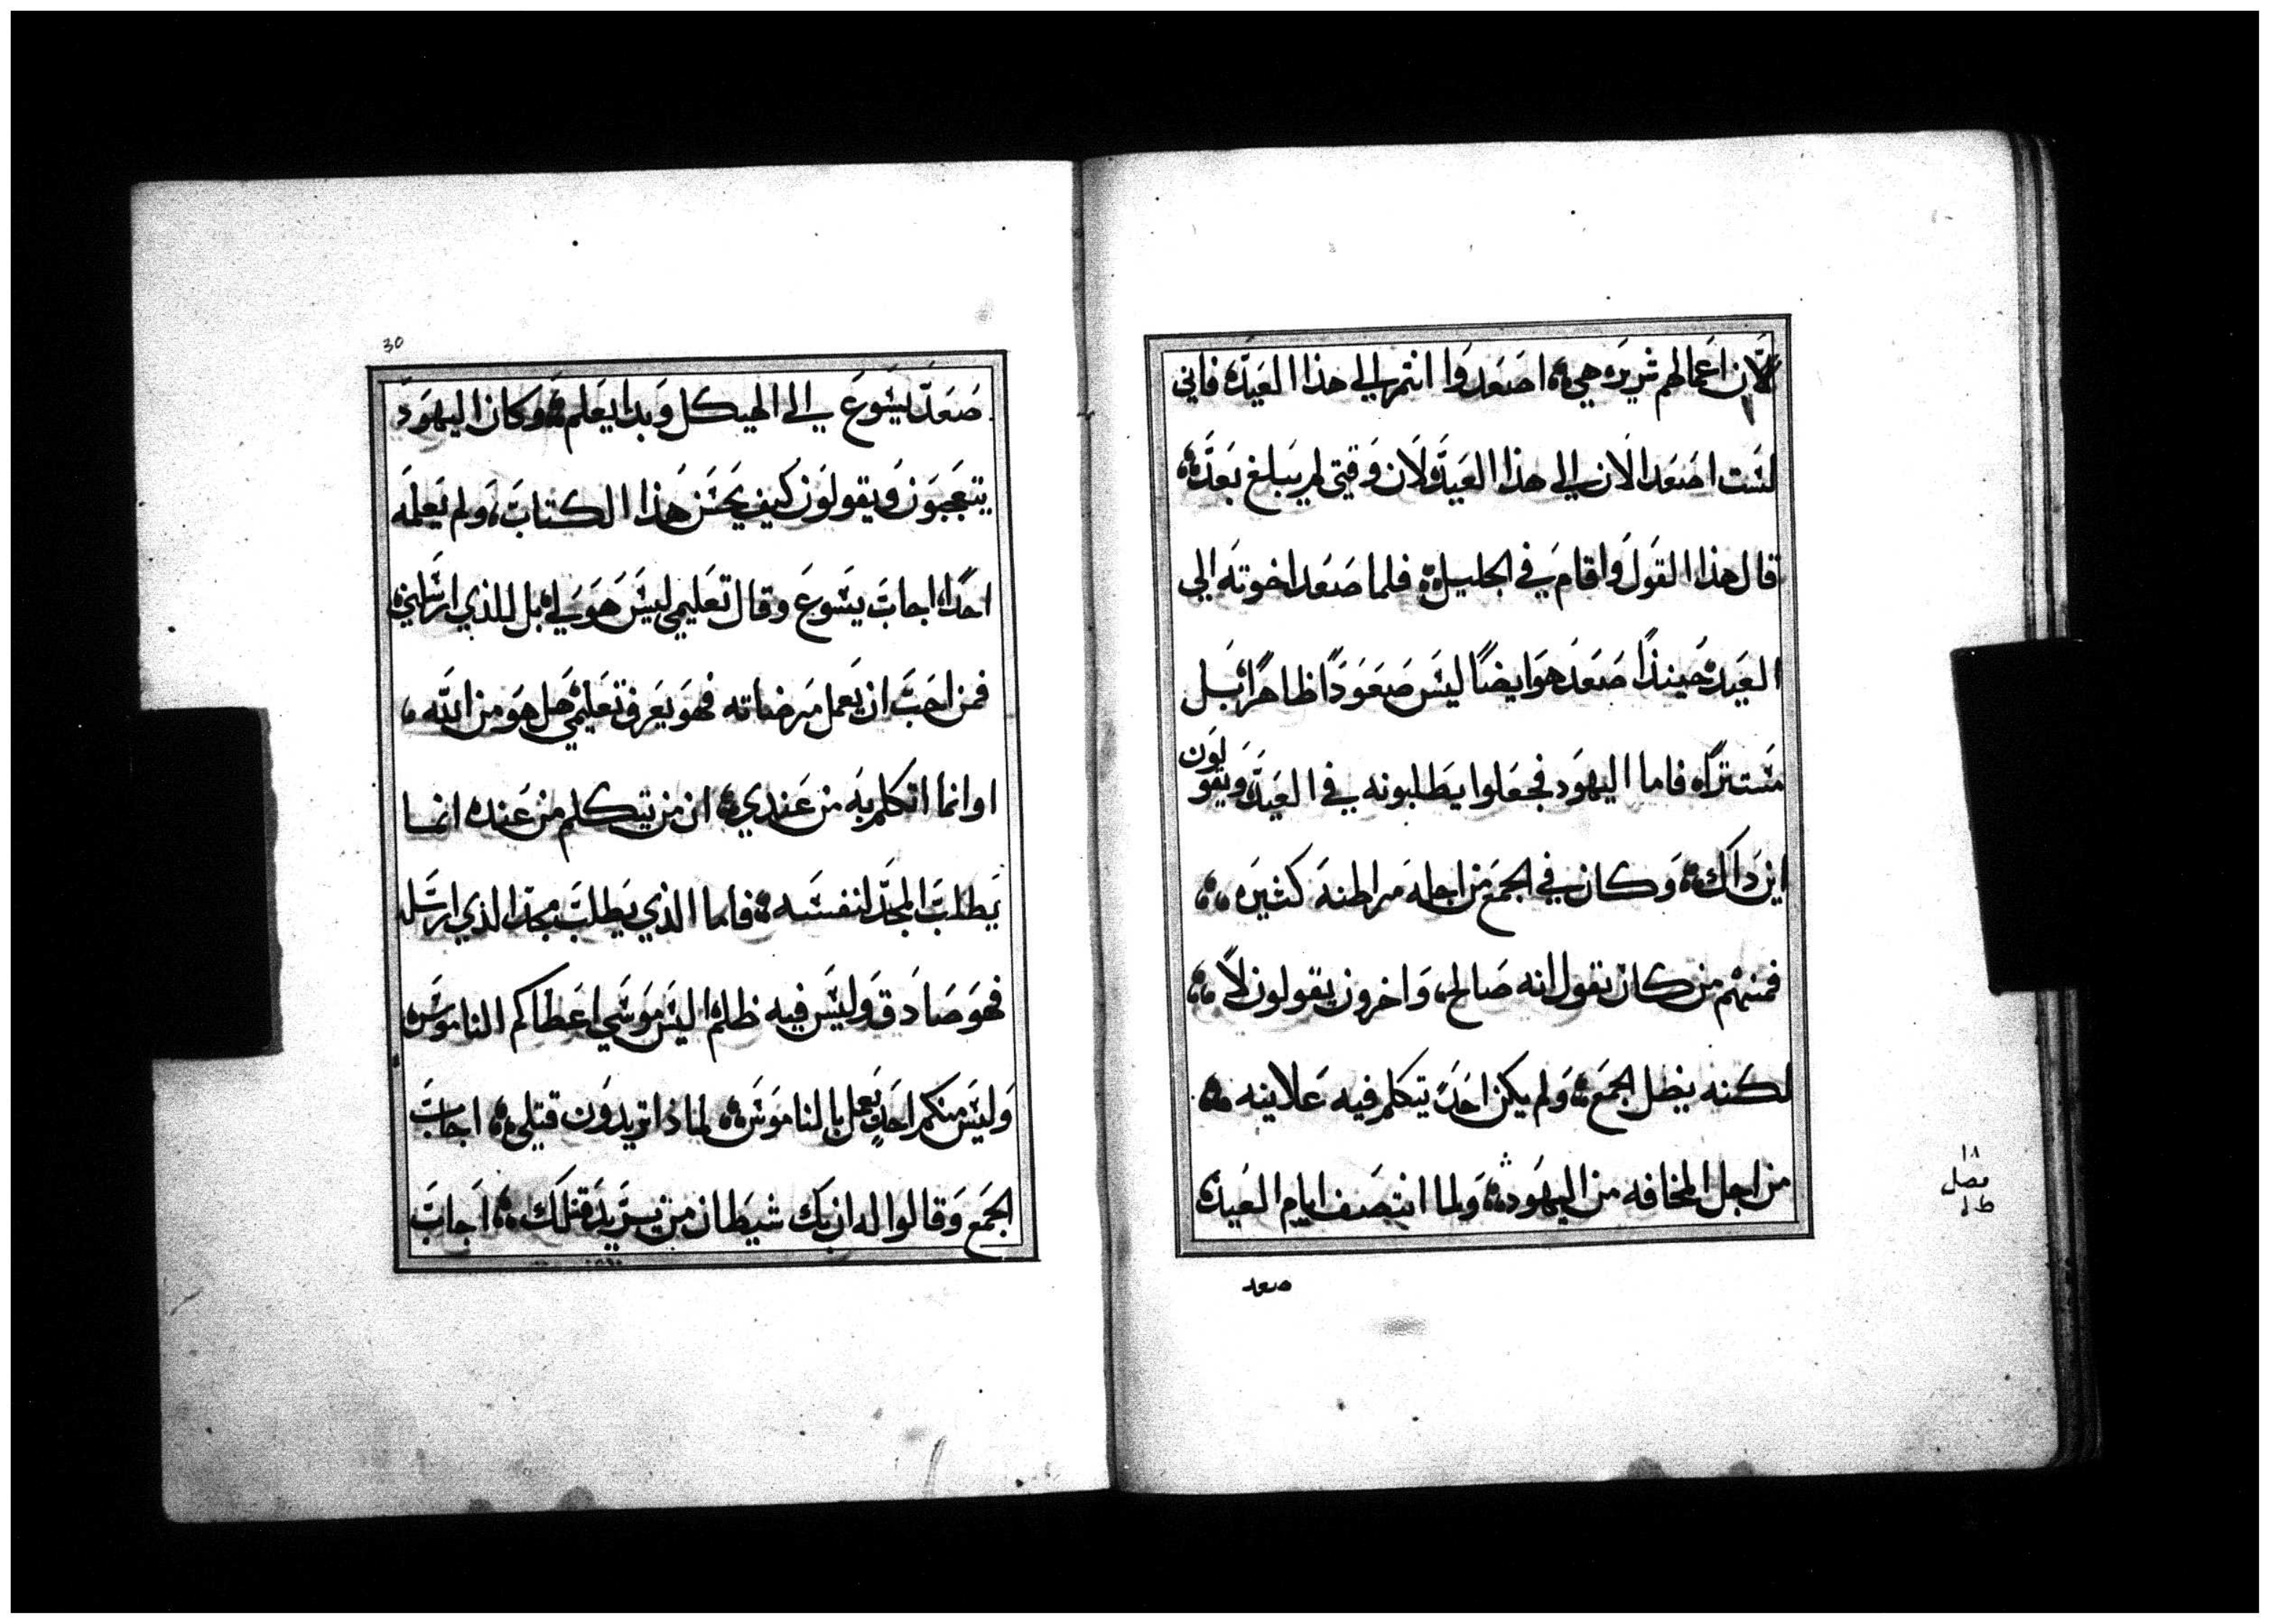 لان اعمالهم شريره هي؛ اصعدوا انتم الي هذا العيد؛ فاني
لست اصعد الان الي هذا العيد لان وقتي لم يبلغ بعد؛
قال هذا القول واقام في الجليل؛ فلما صعد اخوته الي
العيد؛ حينذا صعد هو ايضا ليس صعودا ظاهرا؛ بل
مستترا؛ فاما اليهود فجعلوا يطلبونه في العيد ويقولون
اين ذاك؛ وكان في الجمع من اجله مراطنه كثيره؛
فمنهم من كان يقول انه صالح، واخرون يقولون لا؛
لكنه يضل الجمع؛ ولم يكن احد يتكلم فيه علانيه؛
من اجل المخافه من اليهود؛ ولما انتصف ايام العيد؛
صعد
١٨
فصل
30
صعد يشوع الي الهيكل وبدا يعلم؛ وكان اليهود
يتعجبون ويقولون كيف يحسن هذا الكتاب، ولم يعلمه
احدا؛ اجاب يشوع وقال تعليمي ليس هو لي؛ بل للذي ارسلني؛
فمن احب ان يعمل مرضاته فهو يعرف تعليمي هل هو من الله،
او انما اتكلم به من عندي؛ ان من يتكلم من عنده انما
يطلب المجد لنفسه؛ فاما الذي يطلب مجد الذي ارسله
فهو صادق وليس فيه ظلم؛ اليس موسي اعطاكم الناموس؛
وليس منكم احد يعمل بالناموس؛ لماذا تريدون قتلي؛ اجاب
الجمع وقالوا له ان بك شيطان من يريد قتلك؛ اجاب